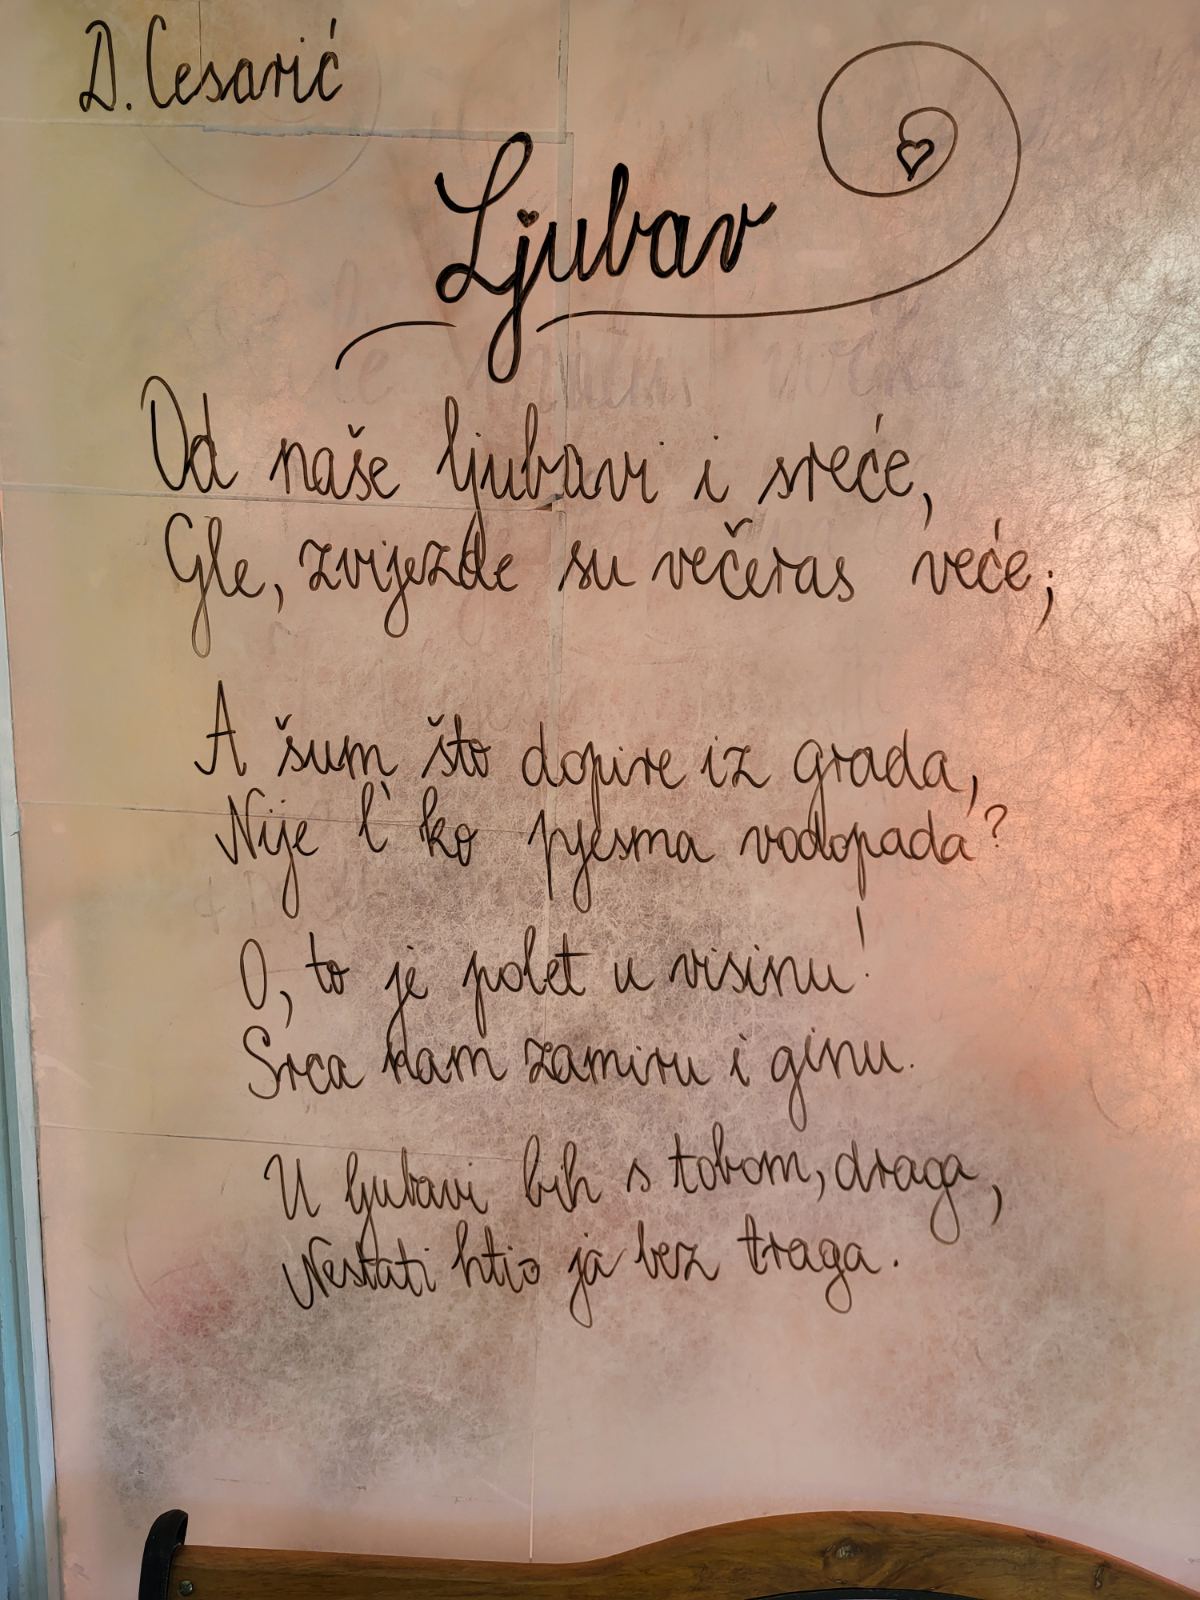 D. Cesarić
Ljubav
Od naše ljubavi i sreće,
Gle, zvijezde su večeras veće;
A šum što dopire iz grada,
Nije l' ko pjesma vodopada?
O, to je polet u visinu!
Srca nam zamiru i ginu.
U ljubavi bih s tobom, draga,
Nestati htio ja bez traga.